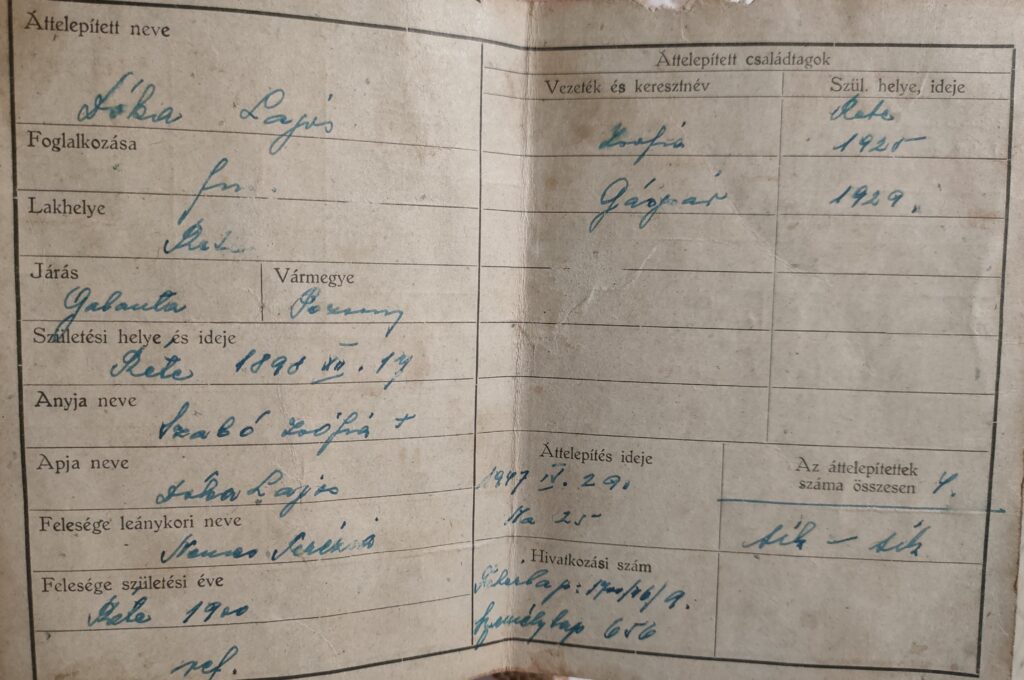 Áttelepített neve
Dóka Lajos
Foglalkozása
fm.
Lakhelye
Réte
Járás
Galanta
Vármegye
Pozsony
Születési helye és ideje
Réte 1898 XII. 17
Anyja neve
Szabó Zsófia +
Apja neve
Dóka Lajos
Felesége leánykori neve
Nemes Terézia
Felesége születési éve
Réte 1900
ref.
Áttelepített családtagok
Vezeték és keresztnév
Szül. helye, ideje
Réte
Zsófia 1925
Gáspár 1929.
Áttelepítés ideje
1947 IV. 29.
Na 25
Az áttelepítettek
száma összesen 4.
sík - sík
Hivatkozási szám
656